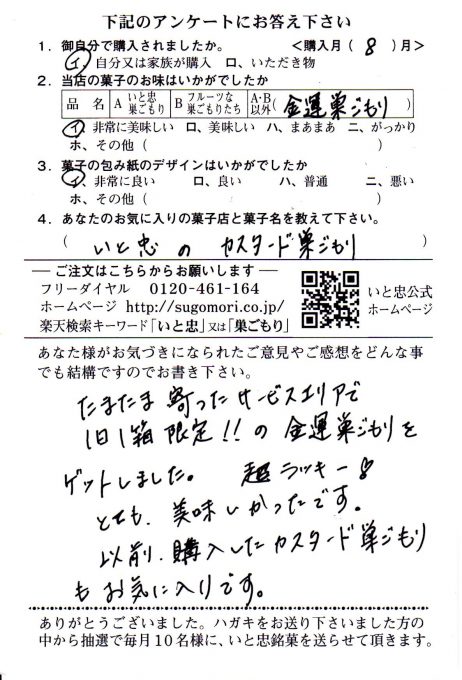 下記のアンケートにお答え下さい
1. 御自分で購入されましたか。 <購入月( 8 )月>
イ、自分又は家族が購入 ロ、いただき物
2. 当店の菓子のお味はいかがでしたか
品 名 A いと忠巣ごもり B フルーツな巣ごもりたち A・B以外( 金運巣ごもり )
イ、非常に美味しい ロ、美味しい ハ、まあまあ ニ、がっかり
ホ、その他( )
3. 菓子の包み紙のデザインはいかがでしたか
イ、非常に良い ロ、良い ハ、普通 ニ、悪い
ホ、その他( )
4. あなたのお気に入りの菓子店と菓子名を教えて下さい。
( いと忠 の カスタード巣ごもり )
― ご注文はこちらからお願いします ―
フリーダイヤル 0120-461-164
ホームページ http://sugomori.co.jp/
楽天検索キーワード「いと忠」又は「巣ごもり」
いと忠公式
ホームページ
あなた様がお気づきになられたご意見やご感想をどんな事
でも結構ですのでお書き下さい。
たまたま 寄ったサービスエリアで
1日1箱限定!!の 金運巣ごもりを
ゲットしました。 超ラッキー♡
とても、美味しいかったです。
以前、購入したカスタード巣ごもり
もお気に入りです。
ありがとうございました。ハガキをお送り下さいました方の
中から抽選で毎月10名様に、いと忠銘菓を送らせて頂きます。